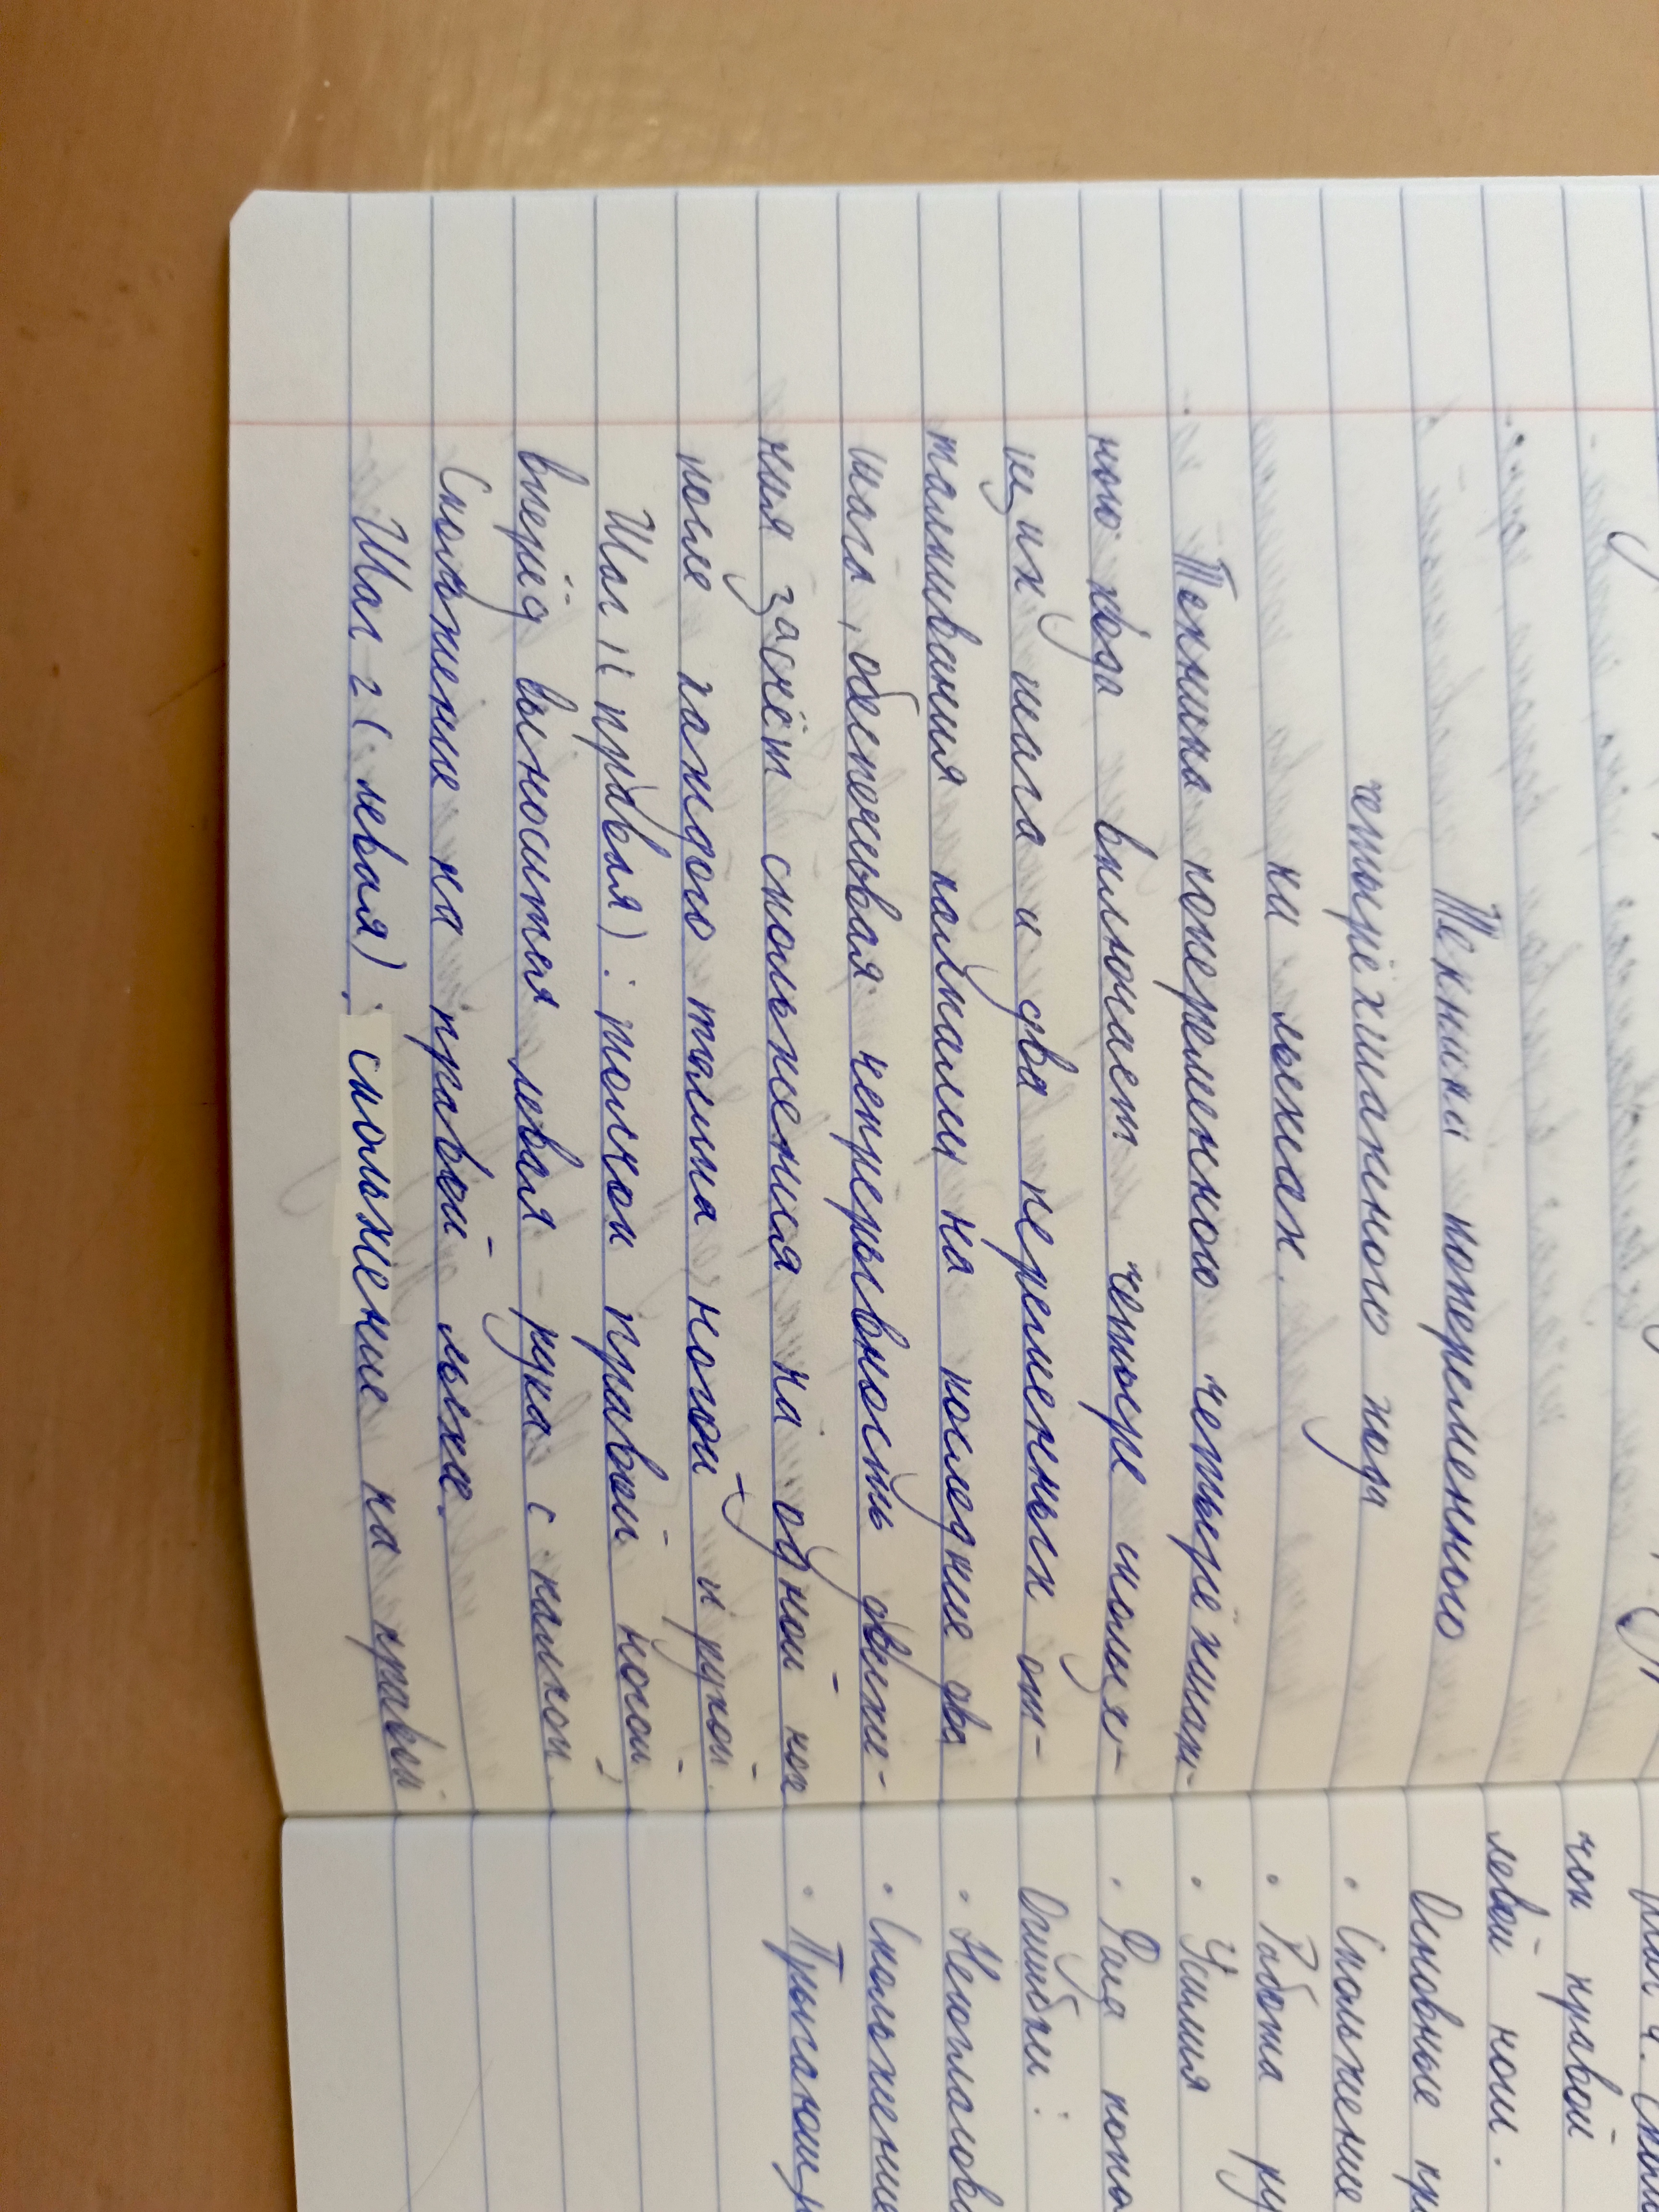 Техника попеременного
четырёхшагного хода
на лыжах.
Техника попеременного четырёхшаг-
ного хода включает четыре скользя-
щих шага и два переменных от-
талкивания палками на последние два
шага, обеспечивая непрерывность движе-
ния за счёт скольжения на одной ноге
после каждого толчка ногой и рукой.
Шаг 1 (правая): толчок правой ногой,
вперёд выносится левая рука с палкой.
Скольжение на правой лыже.
Шаг 2 (левая): скольжение на правой
чок правой
левой ноги.
Основные пр
• Скольжение
• Работа ру
• Усилия
• Фаза
Ошибки:
• Несогласова
• Скольжение